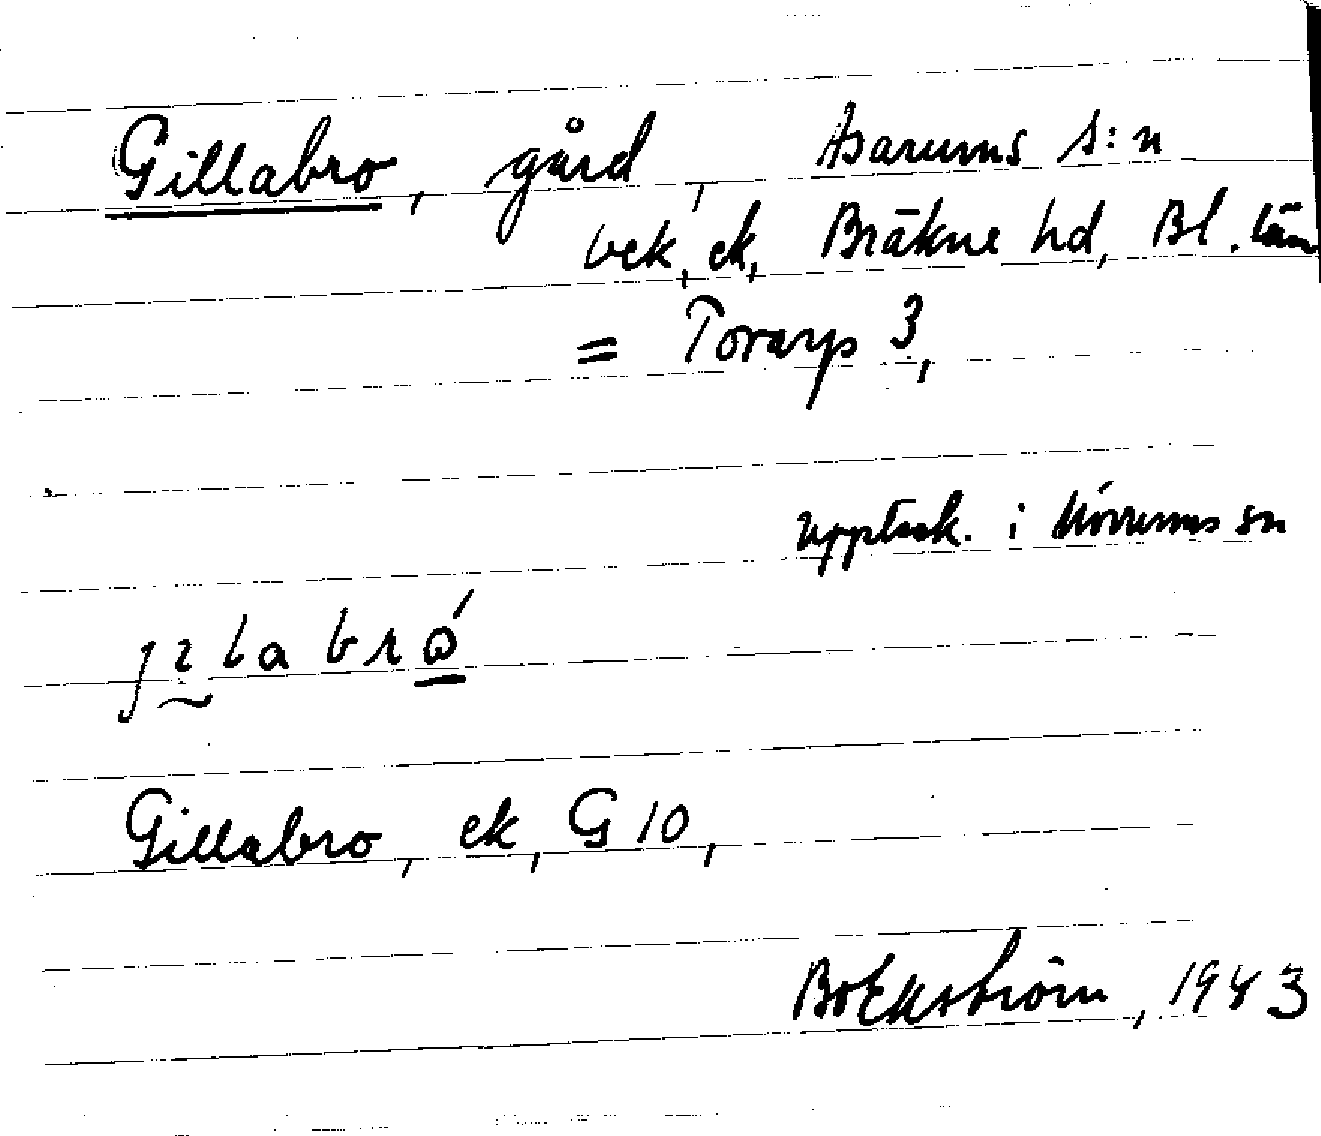 Gillabro, gård, Asarums s:n
vek, ek, Bräkne hd, Bl. län
= Tararp 3,
uppteck. i Mörrums sn
Gillabro, ek, G 10,
Bo Ekström, 1943